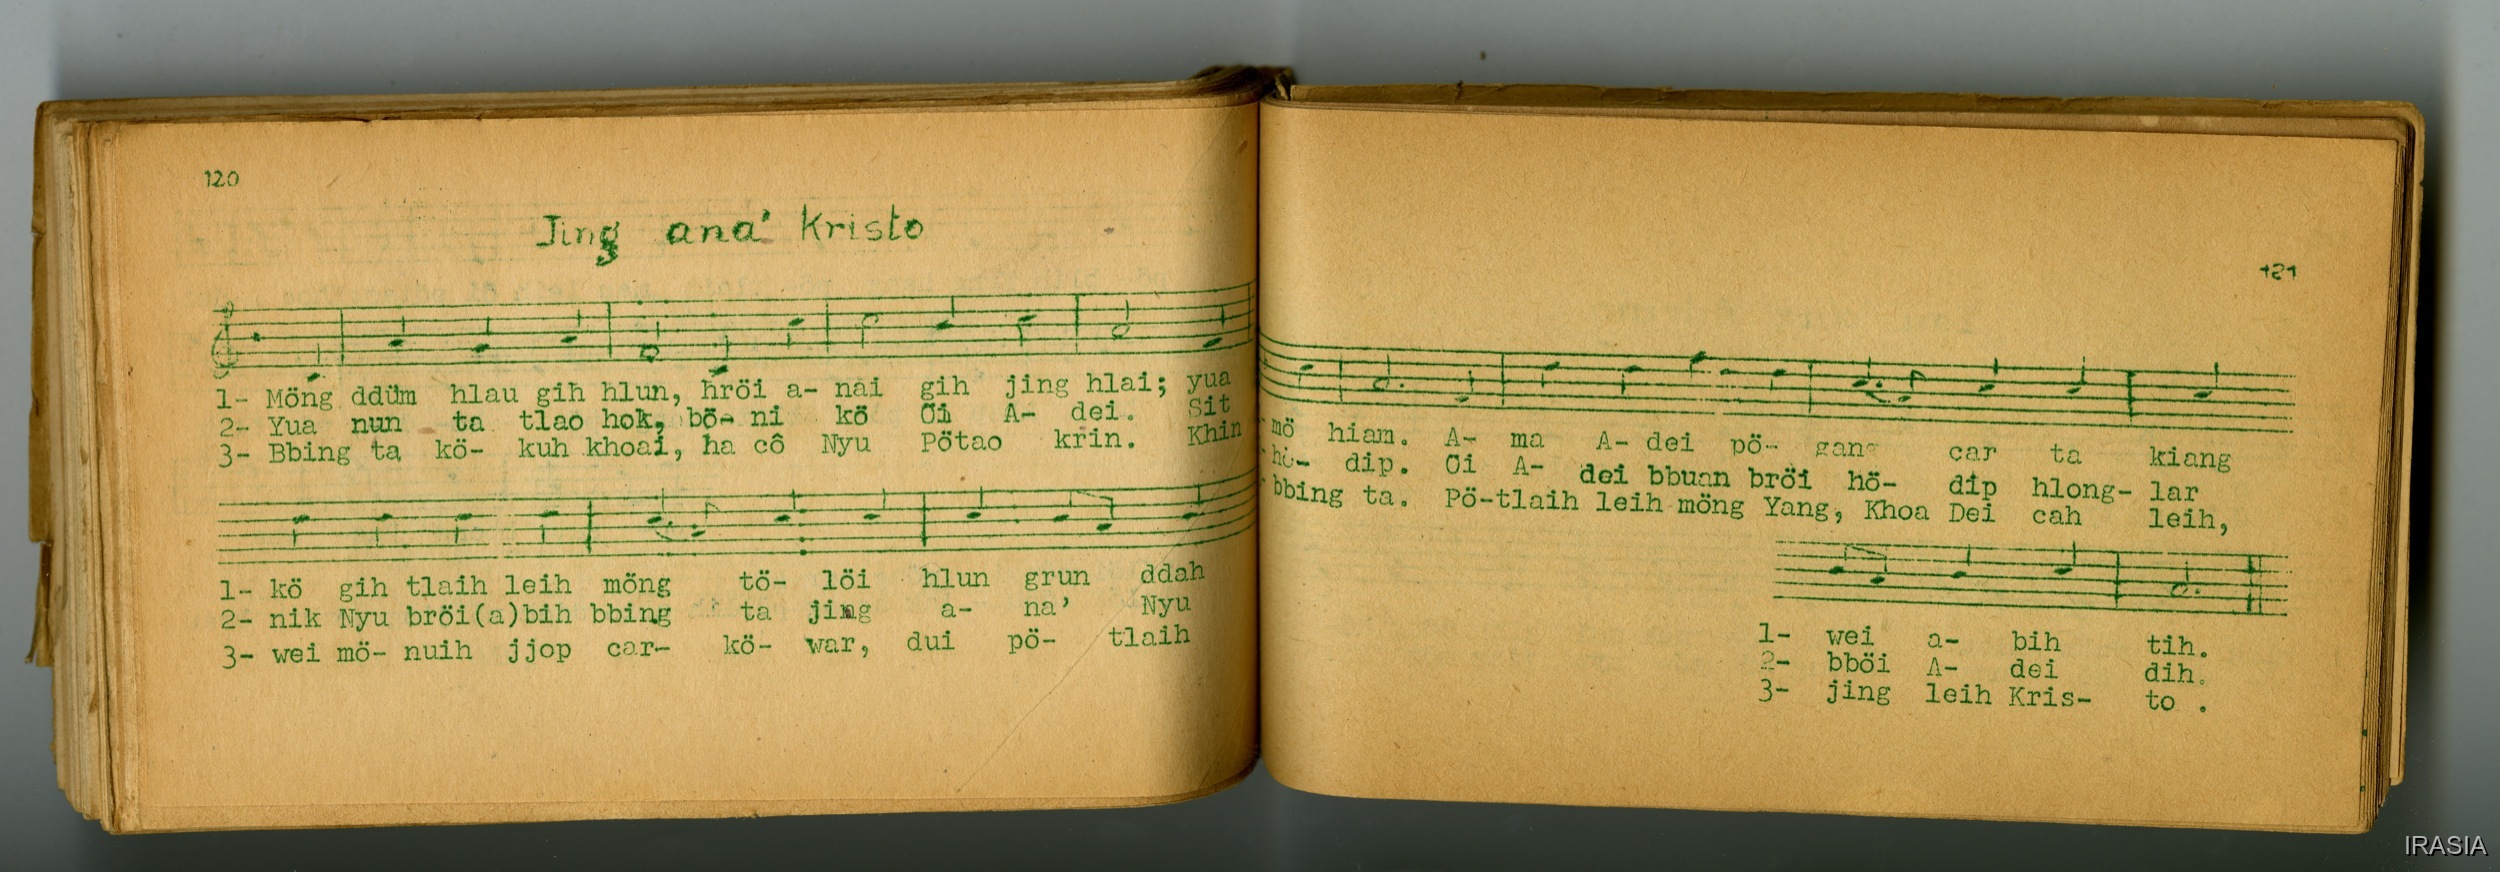 120
Jing ana' Kristo
1- Möng ddüm hlau gih hlun, hröi a- nai gih jing hlai; yua
2- Yua nun ta tlao hok, bö- ni kö Öi A- dei. Sit
3- Bbing ta kö- kuh khoai, ha cô Nyu Pötao krin. Khin
1- kö gih tlaih leih möng tö- löi hlun grun ddah
2- nik Nyu bröi(a)bih bbing ta jing a- na' Nyu
3- wei mö- nuih jjop car- kö- war, dui pö- tlaih
121
mö hiam. A- ma A- dei pö- gang car ta kiang
hö- dip. Öi A- dei bbuan bröi hö- dip hlong- lar
bbing ta. Pö-tlaih leih möng Yang, Khoa Dei cah leih,
1- wei a- bih tih.
2- bböi A- dei dih.
3- jing leih Kris- to .
IRASIA